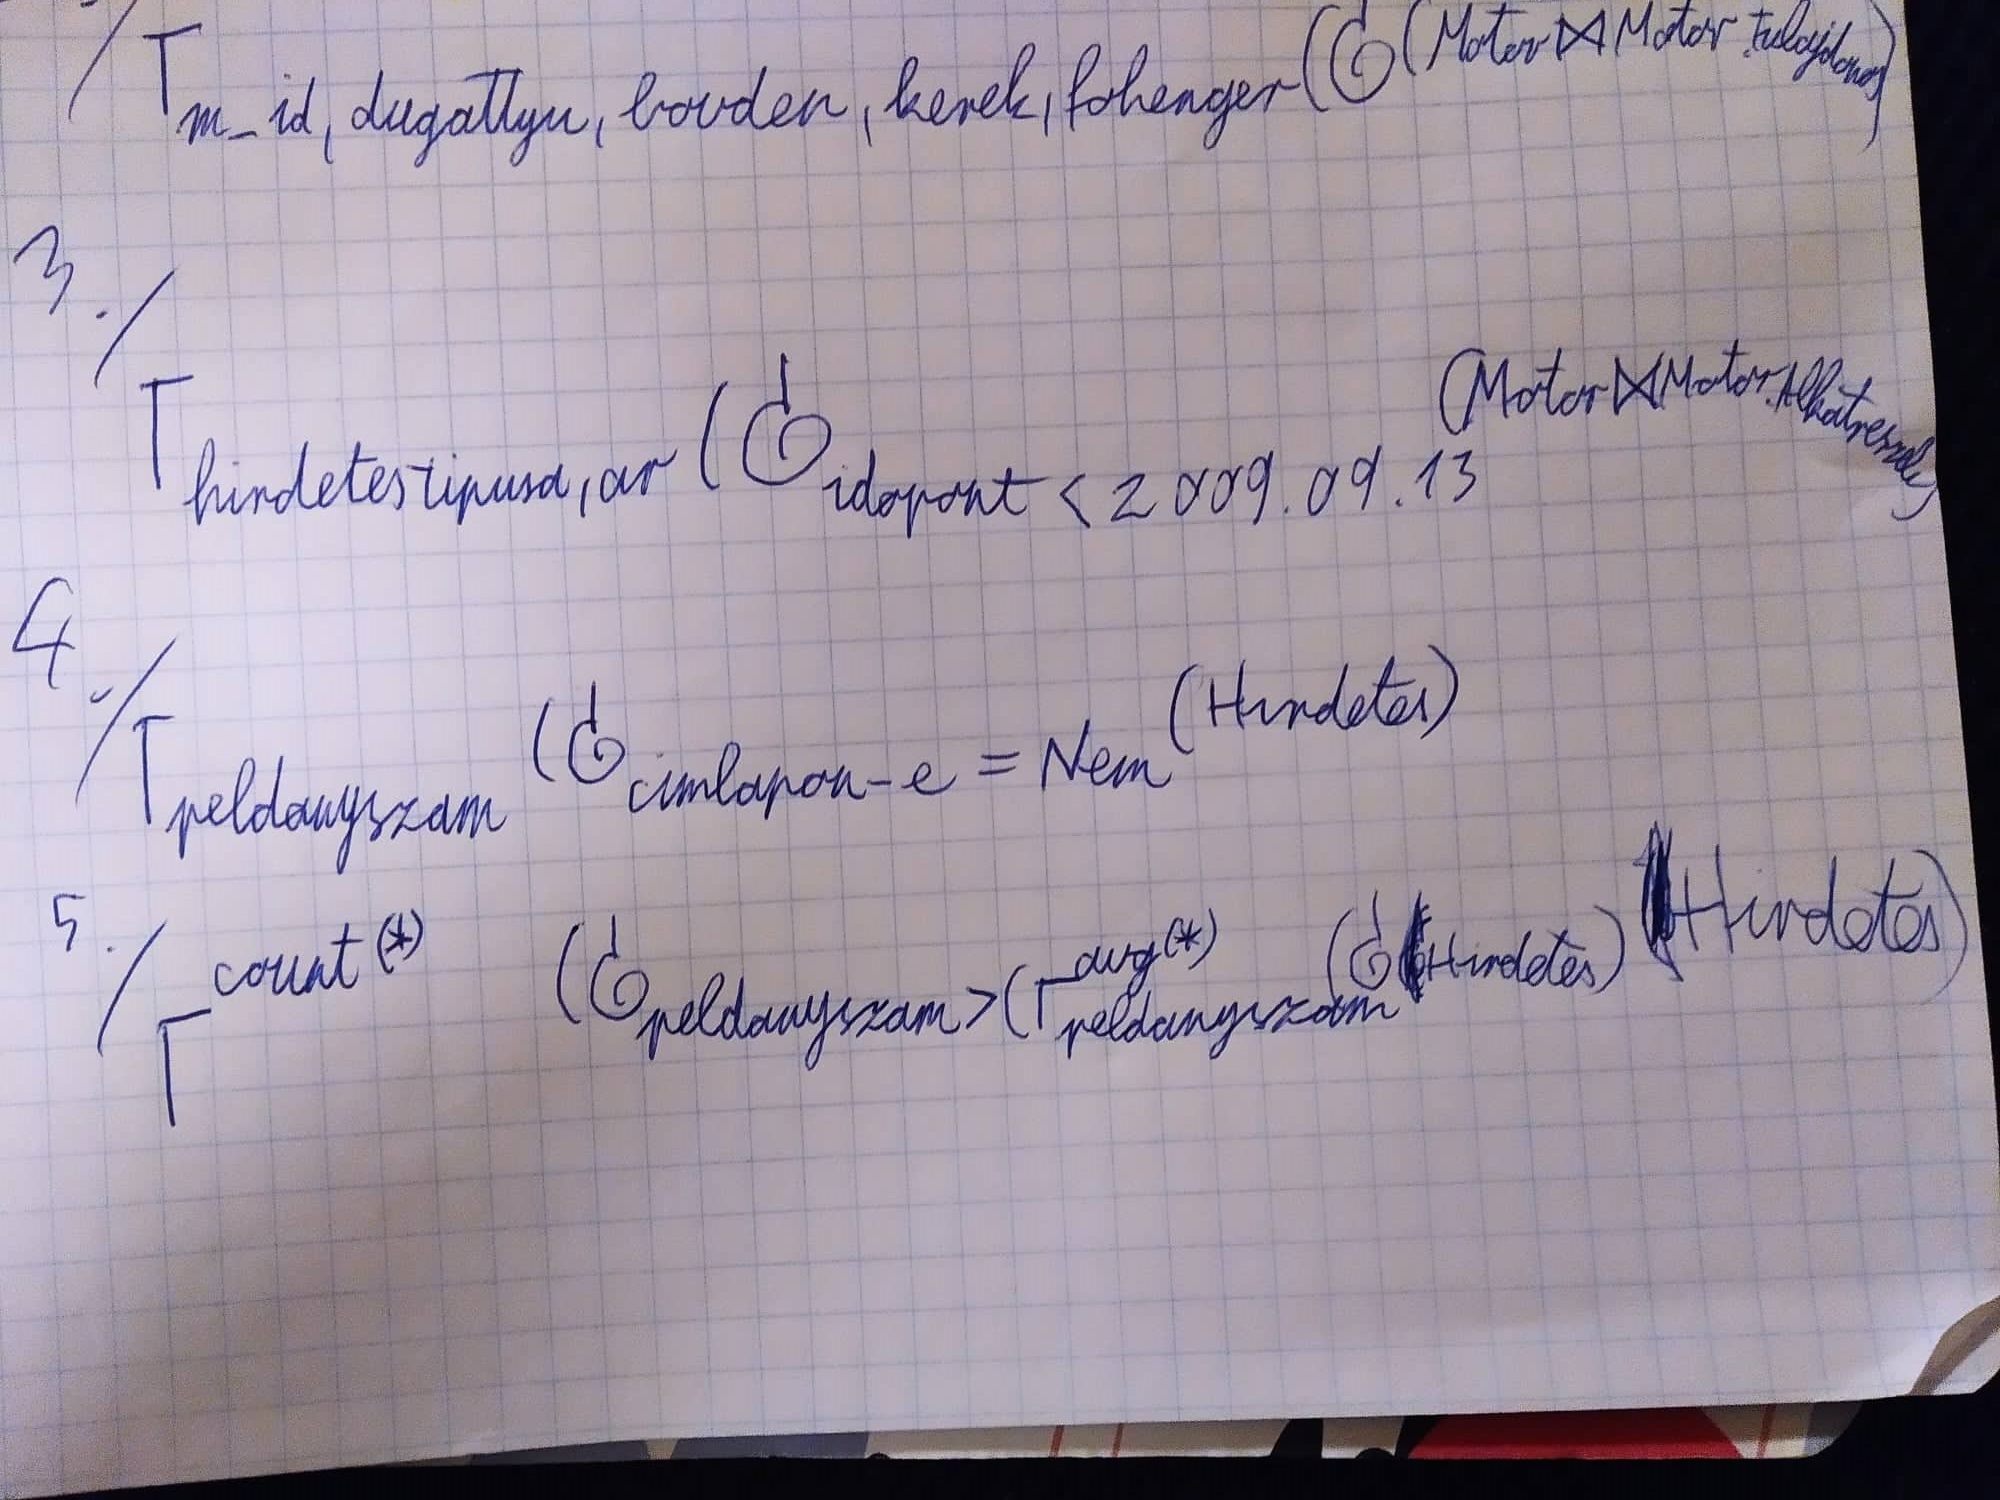 / Γ m_id, dugattyu, bovden, kerek, fohenger (σ (Motor ⋈ Motor.tulajdonos)
3./
Γ hirdetestipusa, ar (σ idopont < 2009.09.13 (Motor ⋈ Motor.Alkatreszek)
4./
Γ peldanyszam (σ cimlapon-e = Nem (Hirdetes)
5./
Γ count(*) (σ peldanyszam > (Γ avg(*) peldanyszam (σ (Hirdetes) (Hirdetes)